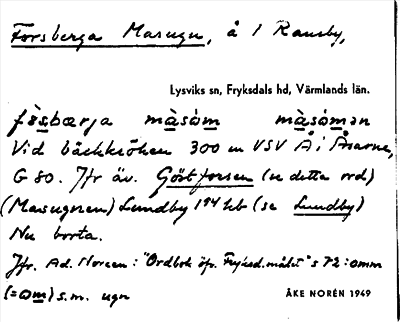 Forsberga Masugn, å 1 Ransby,
Lysviks sn, Fryksdals hd, Värmlands län.
fòsbærja màsóm màsómən
Vid bäckkröken 300 m VSV Å i Åsarne,
G 80. Jfr äv. Göstforsen (se detta ord)
(Masugnen) Lundby 1 44 hb (se Lundby)
Nu borta.
Jfr. Ad. Noreen: "Ordbok öfv. Fryksd.målet" s 72: omm
(=om) s.m. ugn
ÅKE NORÉN 1949